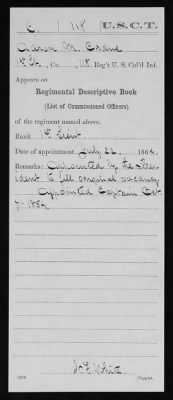 C. | 118 | U.S.C.T.
Aaron M. Crane
1st Lt., Co. , 118 Reg't U. S. Col'd Inf.
Appears on
Regimental Descriptive Book
(List of Commissioned Officers)
of the regiment named above.
Rank 1st Lieut
Date of appointment July 22, 1864.
Remarks: Appointed by the Pres-
ident to fill original vacancy
Appointed Captain Oct
7 - 1864
White
Copyist.